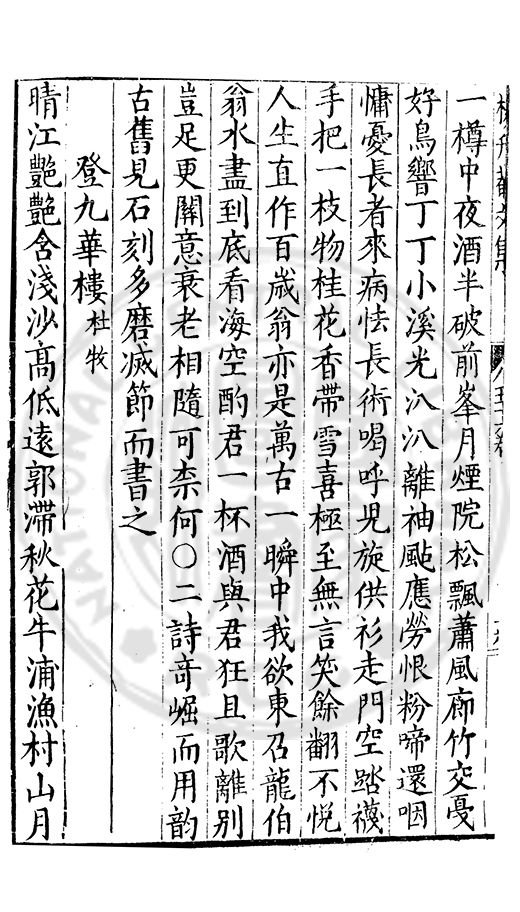 一樽中夜酒半破前峯月煙院松飄蕭風廊竹交戞
好鳥響丁丁小溪光汃汃離袖颭應勞恨粉啼還咽
慵憂長者來病怯長術喝呼兒旋供衫走門空踏襪
手把一枝物桂花香帶雪喜極至無言笑餘翻不悅
人生直作百歲翁亦是萬古一瞬中我欲東召龍伯
翁水盡到底看海空酌君一杯酒與君狂且歌離別
豈足更關意衰老相隨可柰何〇二詩奇崛而用韵
古舊見石刻多磨滅節而書之
登九華樓 杜牧
晴江艷艷含淺沙高低遠郭滯秋花牛浦漁村山月